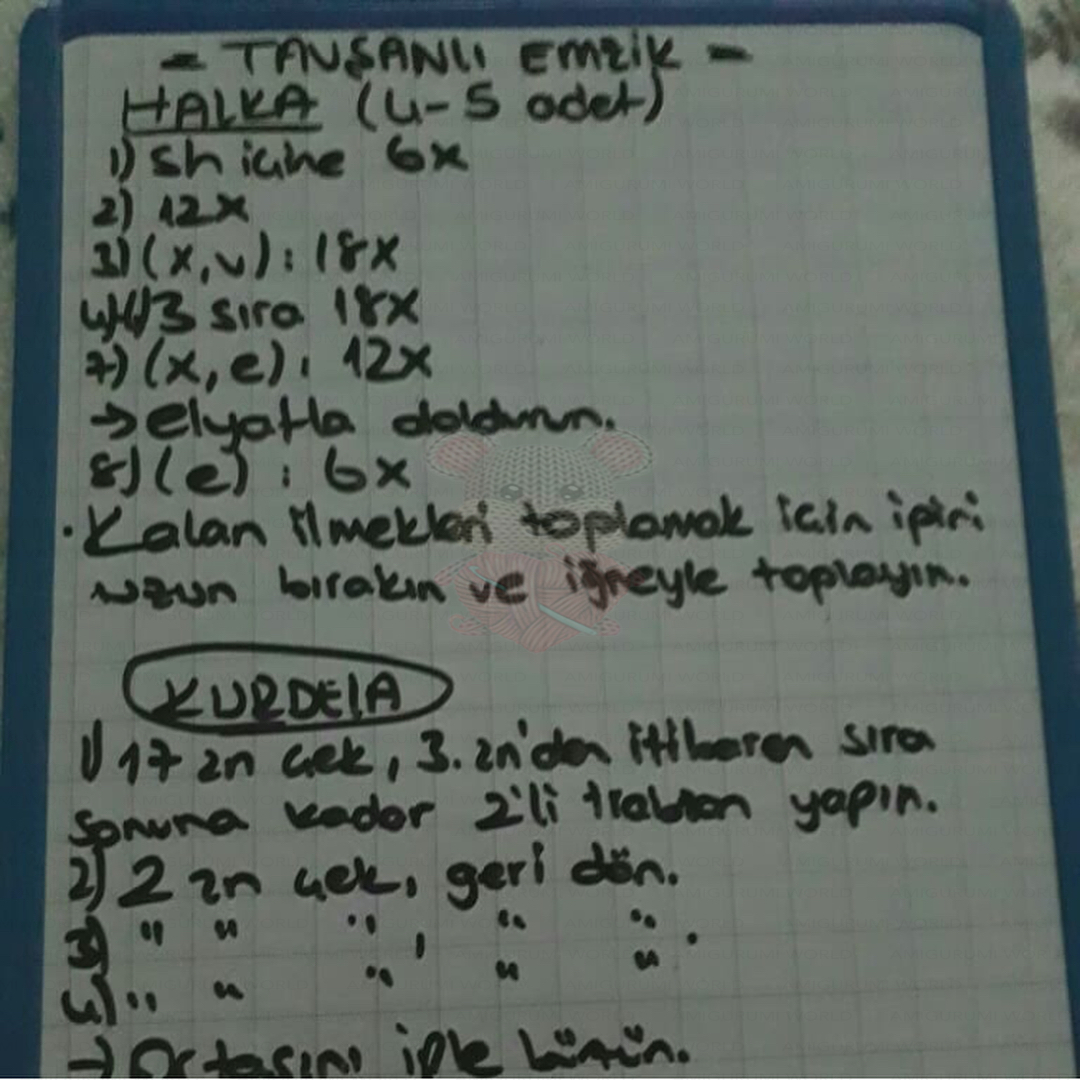 - TAVŞANLI EMZİK -
HALKA (4-5 adet)
1) sh içine 6x
2) 12x
3) (x,v): 18x
3 sıra 18x
7) (x,e): 12x
→ elyafla doldurun.
8) (e): 6x
• Kalan ilmekleri toplamak için ipini
uzun bırakın ve iğneyle toplayın.
KURDELA
1) 17 zn çek, 3. zn'den itibaren sıra
sonuna kadar 2'li trabzan yapın.
2) 2 zn çek, geri dön.
3) " " " , " " .
4) " " " " "
→ Ortasını iple büzün.